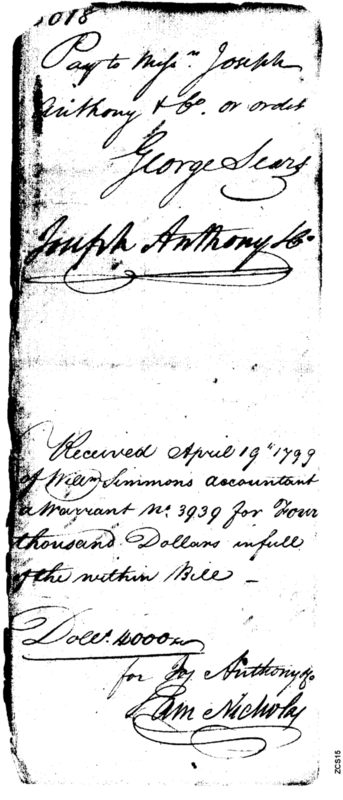 5018
Pay to Messrs Joseph
Anthony & Co. or order
George Sears
Joseph Anthony & Co
Received April 19th 1799
of Willm Simmons accountant
a Warrant No. 3939 for Four
thousand Dollars in full
of the within Bill –
Dolls. 4000
for Jos Anthony & Co
Sam Nicholas
ZCS15